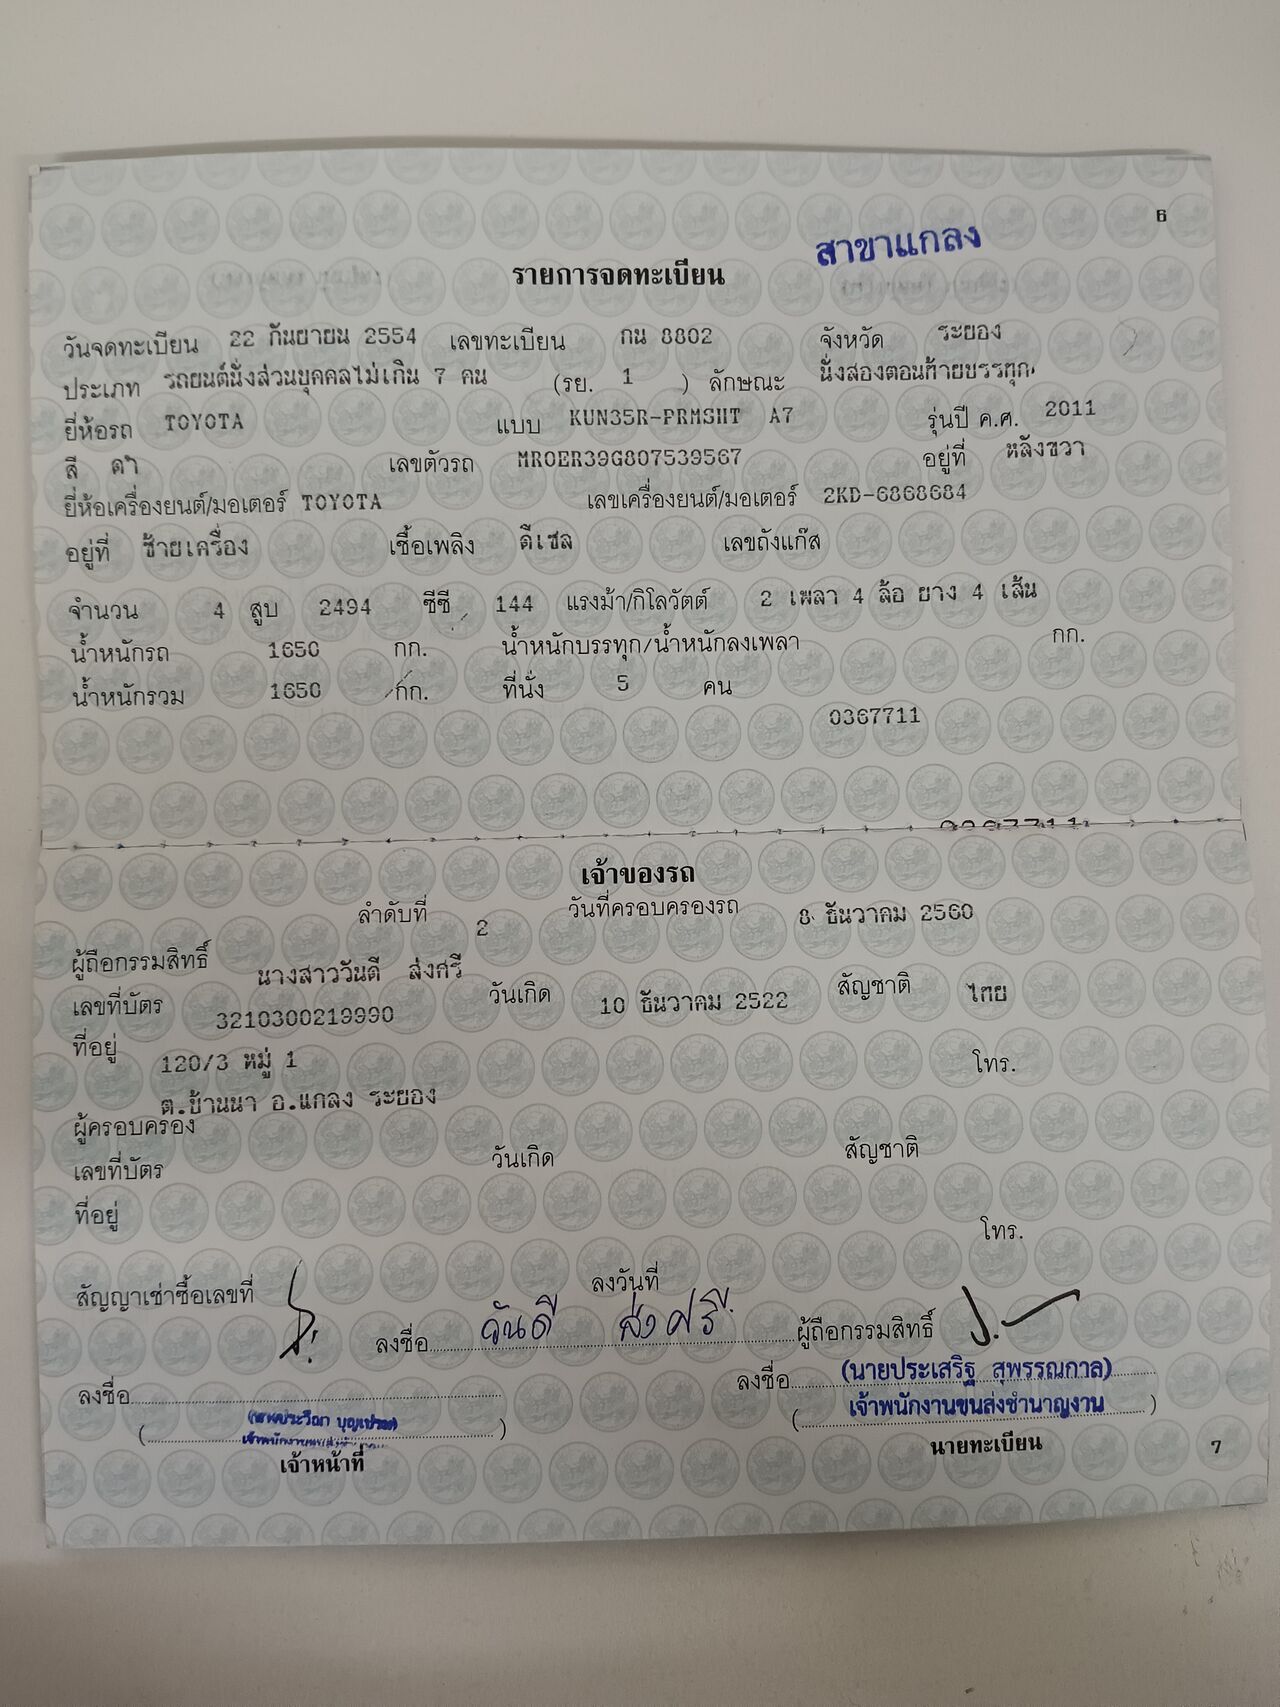 6
สาขาแกลง
รายการจดทะเบียน
วันจดทะเบียน 22 กันยายน 2554 เลขทะเบียน กน 8802 จังหวัด ระยอง
ประเภท รถยนต์นั่งส่วนบุคคลไม่เกิน 7 คน (รย. 1 ) ลักษณะ นั่งสองตอนท้ายบรรทุก
ยี่ห้อรถ TOYOTA แบบ KUN35R-PRMSHT A7 รุ่นปี ค.ศ. 2011
สี ดำ เลขตัวรถ MR0ER39G807539567 อยู่ที่ หลังขวา
ยี่ห้อเครื่องยนต์/มอเตอร์ TOYOTA เลขเครื่องยนต์/มอเตอร์ 2KD-6868684
อยู่ที่ ซ้ายเครื่อง เชื้อเพลิง ดีเซล เลขถังแก๊ส
จำนวน 4 สูบ 2494 ซีซี 144 แรงม้า/กิโลวัตต์ 2 เพลา 4 ล้อ ยาง 4 เส้น
น้ำหนักรถ 1650 กก. น้ำหนักบรรทุก/น้ำหนักลงเพลา กก.
น้ำหนักรวม 1650 กก. ที่นั่ง 5 คน
0367711
เจ้าของรถ
ลำดับที่ 2 วันที่ครอบครองรถ 8 ธันวาคม 2560
ผู้ถือกรรมสิทธิ์ นางสาววันดี ส่งศรี
เลขที่บัตร 3210300219990 วันเกิด 10 ธันวาคม 2522 สัญชาติ ไทย
ที่อยู่ 120/3 หมู่ 1 โทร.
ต.บ้านนา อ.แกลง ระยอง
ผู้ครอบครอง
เลขที่บัตร วันเกิด สัญชาติ
ที่อยู่ โทร.
สัญญาเช่าซื้อเลขที่ ลงวันที่
ลงชื่อ วันดี ส่งศรี ผู้ถือกรรมสิทธิ์
ลงชื่อ ลงชื่อ (นายประเสริฐ สุพรรณกาล)
( ) ( เจ้าพนักงานขนส่งชำนาญงาน )
เจ้าหน้าที่ นายทะเบียน
7